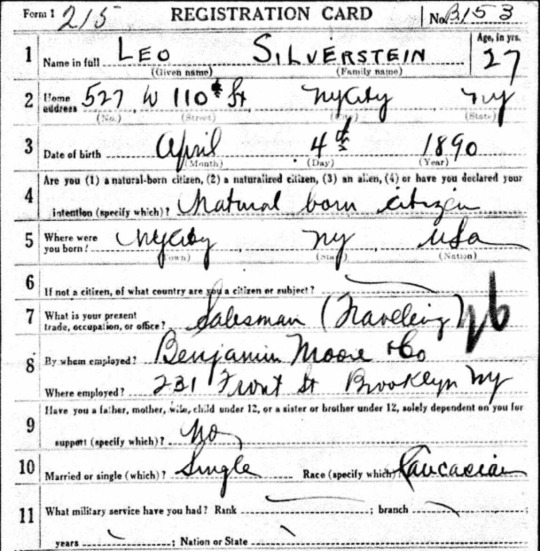 Form 1 215 REGISTRATION CARD No. B153
1 Name in full LEO SILVERSTEIN Age, in yrs. 27
(Given name) (Family name)
2 Home address 527 W 110th St NYCity NY
(No.) (Street) (City) (State)
3 Date of birth April 4th 1890
(Month) (Day) (Year)
4 Are you (1) a natural-born citizen, (2) a naturalized citizen, (3) an alien, (4) or have you declared your
intention (specify which)? Natural born citizen
5 Where were you born? NYCity NY USA
(Town) (State) (Nation)
6 If not a citizen, of what country are you a citizen or subject?
7 What is your present trade, occupation, or office? Salesman (Traveling) 26
8 By whom employed? Benjamin Moore & Co
Where employed? 231 Front St Brooklyn NY
9 Have you a father, mother, wife, child under 12, or a sister or brother under 12, solely dependent on you for
support (specify which)? No
10 Married or single (which)? Single Race (specify which)? Caucasian
11 What military service have you had? Rank ; branch
years ; Nation or State